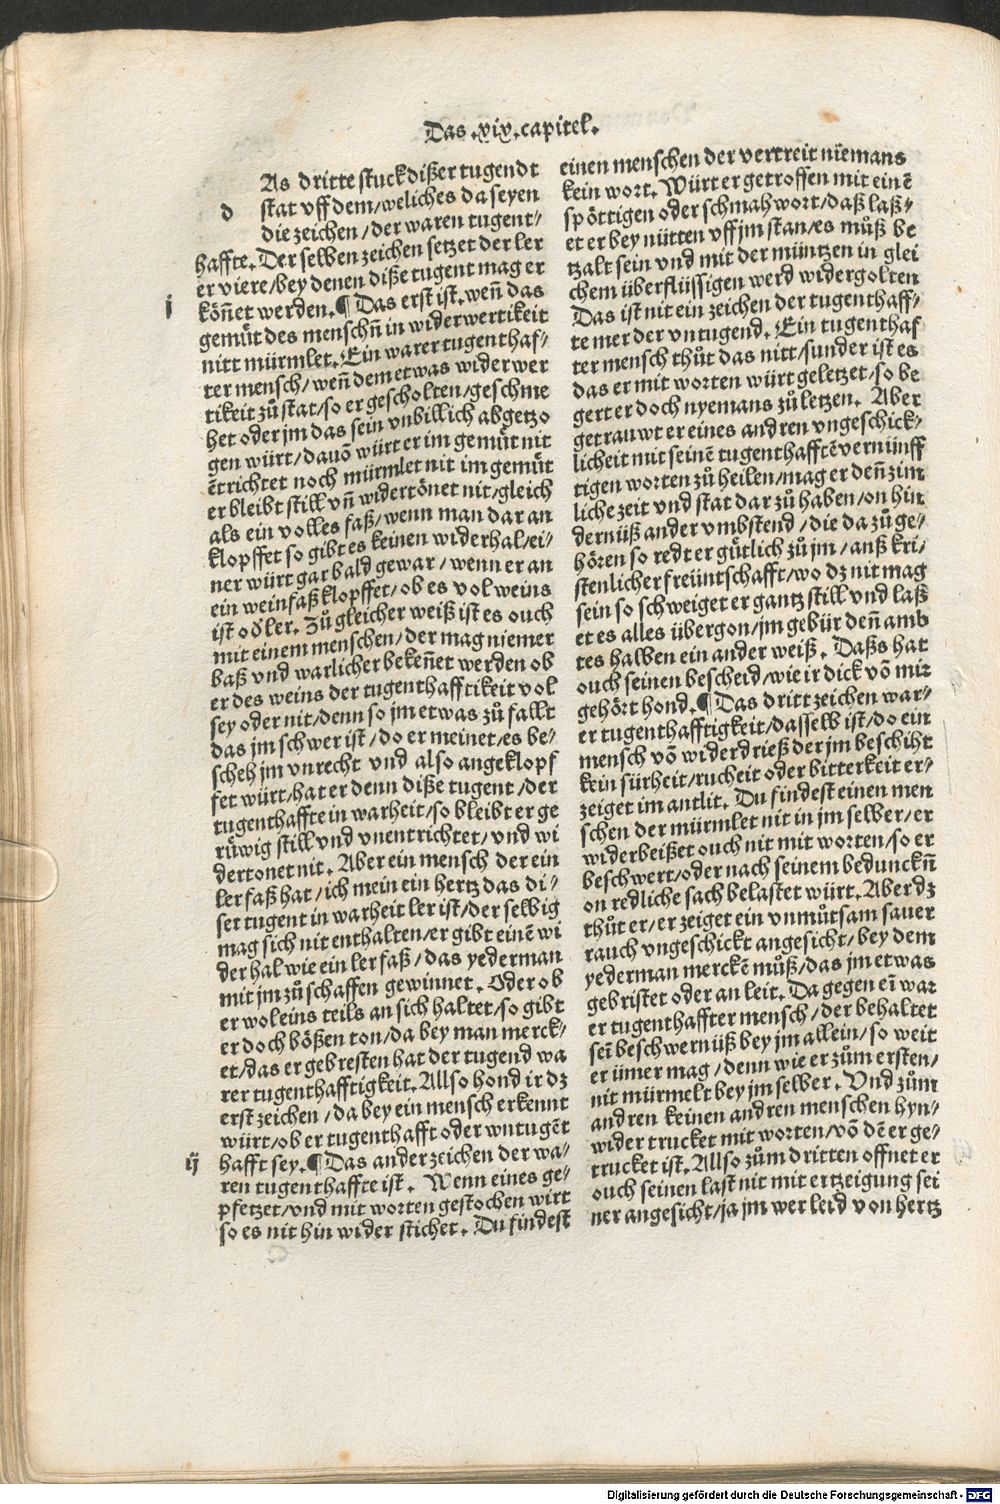 Das .xix. capitel.
d
As dritte stuck dißer tugendt
stat vff dem/weliches da seyen
die zeichen/der waren tugent-
haffte. Der selben zeichen setzet der ler
er viere/bey denen diße tugent mag er
i
könnet werden. ¶ Das erst ist. weñ das
gemüt des menschñ in widerwertikeit
nitt mürmlet. Ein warer tugenthaf-
ter mensch/weñ dem etwas widerwer
tikeit zů stat/so er gescholten/geschme
het oder jm das sein vnbillich abgetzo
gen würt/dauō würt er im gemüt nit
ētrichtet noch mürmlet nit im gemüt
er bleibt still vñ widertönet nit/gleich
als ein volles faß/wenn man dar an
klopffet so gibt es keinen widerhal/ei-
ner würt gar bald gewar/wenn er an
ein weinfaß klopffet/ob es vol weins
ist oď ler. Zů gleicher weiß ist es ouch
mit einem menschen/der mag niemer
baß vnd warlicher bekeñet werden ob
er des weins der tugenthafftikeit vol
sey oder nit/denn so jm etwas zů fallt
das jm schwer ist/do er meinet/es be-
scheh jm vnrecht vnd also angeklopf
fet würt/hat er denn diße tugent/der
tugenthaffte in warheit/so bleibt er ge
rüwig still vnd vnentrichtet/vnd wi
dertonet nit. Aber ein mensch der ein
ler faß hat/ich mein ein hertz das di-
ser tugent in warheit ler ist/der selbig
mag sich nit enthalten/er gibt einē wi
der hal wie ein ler faß/das yederman
mit jm zů schaffen gewinnet. Oder ob
er wol eins teils an sich haltet/so gibt
er doch bößen ton/da bey man merck-
et/das er gebresten hat der tugend wa
rer tugenthafftigkeit. Allso hond ir dz
erst zeichen/da bey ein mensch erkennt
würt/ob er tugenthafft oder vntugēt
ij
hafft sey. ¶ Das ander zeichen der wa-
ren tugenthaffte ist. Wenn eines ge-
pfetzet/vnd mit worten gestochen wirt
so es nit hin wider stichet. Du findest
einen menschen der vertreit niemans
kein wort. Würt er getroffen mit einē
spöttigen oder schmahwort/daß laß-
et er bey nütten vff jm stan/es můß be
tzalt sein vnd mit der müntzen in glei
chem überflüssigen werd widergolten
Das ist nit ein zeichen der tugenthaff-
te mer der vntugend. Ein tugenthaf
ter mensch thůt das nitt/sunder ist es
das er mit worten würt geletzet/so be
gert er doch nyemans zů letzen. Aber
getrauwt er eines andren vngeschick-
licheit mit seinē tugenthafftē vernünff
tigen worten zů heilen/mag er deñ zim
liche zeit vnd stat dar zů haben/on hin
dernüß ander vmbstend/die da zů ge-
hören so redt er gütlich zů jm/auß kri-
stenlicher freüntschafft/wo dz nit mag
sein so schweiget er gantz still vnd laß
et es alles übergon/jm gebür deñ amb
tes halben ein ander weiß. Daßs hat
ouch seinen bescheid/wie ir dick vō mir
gehört hond. ¶ Das dritt zeichen war-
er tugenthafftigkeit/dasselb ist/do ein
mensch vō widerdrieß der jm beschiht
kein sürheit/rucheit oder bitterkeit er-
zeiget im antlit. Du findest einen men
schen der mürmlet nit in jm selber/er
widerbeißet ouch nit mit worten/so er
beschwert/oder nach seinem bedunckñ
on redliche sach belastet würt. Aber dz
thůt er/er zeiget ein vnmůtsam sauer
rauch vngeschickt angesicht/bey dem
yederman merckē můß/das jm etwas
gebristet oder an leit. Da gegen eī war
er tugenthaffter mensch/der behaltet
seī beschwernüß bey jm allein/so weit
er ümer mag/denn wie er zům ersten/
nit mürmelt bey jm selber. Vnd zům
andren keinen andren menschen hyn-
wider trucket mit worten/vō dē er ge-
trucket ist. Allso zům dritten offnet er
ouch seinen last nit mit ertzeigung sei
ner angesicht/ja jm wer leid von hertz
Digitalisierung gefördert durch die Deutsche Forschungsgemeinschaft - DFG